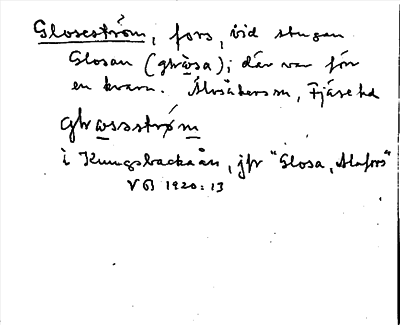 Gloseström, fors, vid stugan
Glosan (glωsa); där var för
en kvarn. Älvsåkers sn, Fjäre hd
glωsstrøm
i Kungsbackaån, jfr "Glosa, Alafors"
VB 1920:13